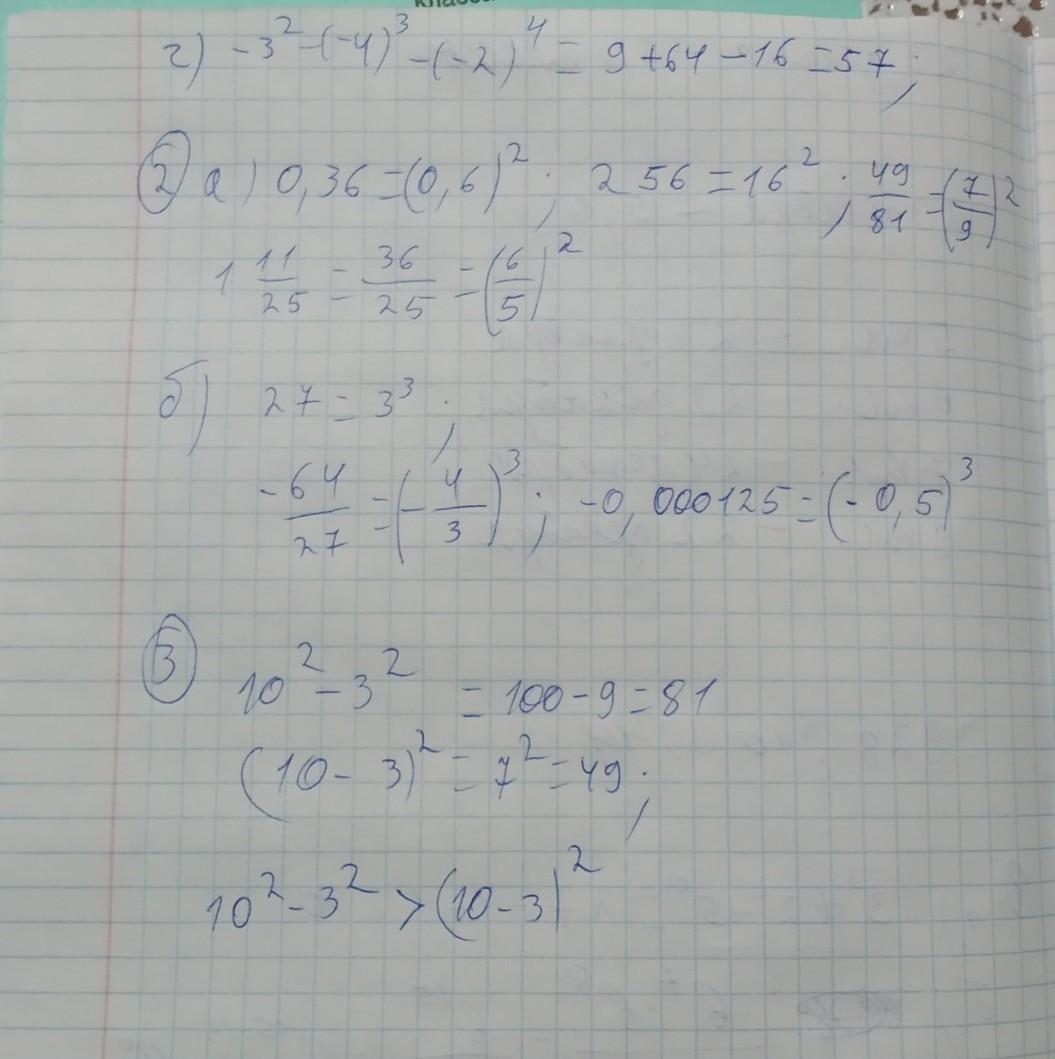 класса
г) -3² -(-4)³ -(-2)⁴ = 9 + 64 - 16 = 57;
② а) 0,36 = (0,6)²; 256 = 16²; 49/81 = (7/9)²
1 11/25 = 36/25 = (6/5)²
б) 27 = 3³;
-64/27 = (-4/3)³; -0,000125 = (-0,5)³
③ 10² - 3² = 100 - 9 = 81
(10 - 3)² = 7² = 49;
10² - 3² > (10 - 3)²